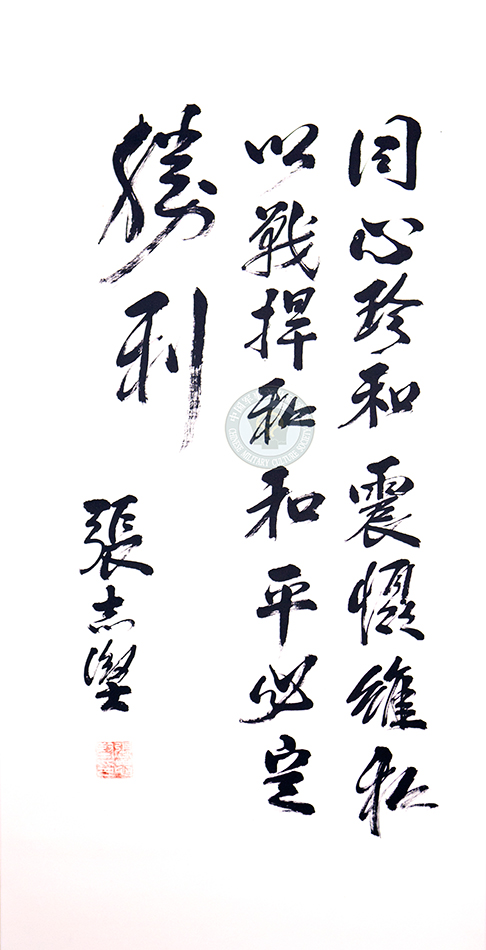 同心珍和震懾維和
以戰捍和和平必定
勝利
張志